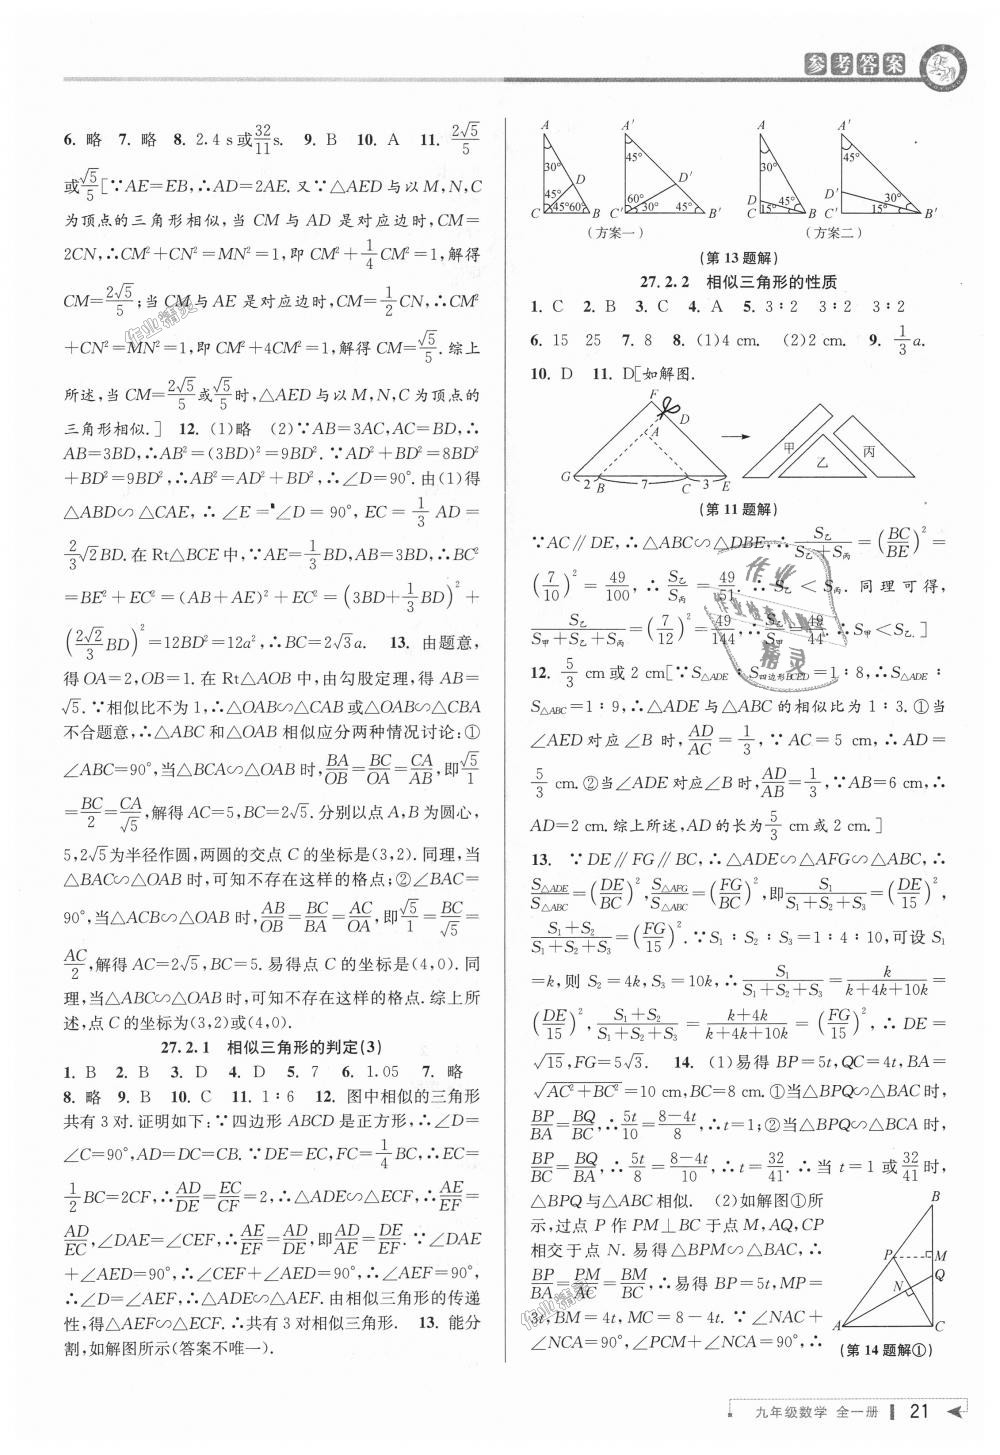 参考答案
6. 略 7. 略 8. 2.4 s或32/11 s. 9. B 10. A 11. 2√5/5
或√5/5[∵AE=EB,∴AD=2AE.又∵△AED与以M,N,C
为顶点的三角形相似,当 CM 与 AD 是对应边时,CM=
2CN,∴CM²+CN²=MN²=1,即CM²+1/4CM²=1,解得
CM=2√5/5;当CM与AE是对应边时,CM=1/2CN,∴CM²
+CN²=MN²=1,即CM²+4CM²=1,解得CM=√5/5.综上
所述,当CM=2√5/5或√5/5时,△AED与以M,N,C为顶点的
三角形相似.] 12. (1)略 (2)∵AB=3AC,AC=BD,∴
AB=3BD,∴AB²=(3BD)²=9BD².∵AD²+BD²=8BD²
+BD²=9BD²,∴AB²=AD²+BD²,∴∠D=90°.由(1)得
△ABD∽△CAE,∴∠E=∠D=90°,EC=1/3AD=
2/3√2BD.在Rt△BCE中,∵AE=1/3BD,AB=3BD,∴BC²
=BE²+EC²=(AB+AE)²+EC²=(3BD+1/3BD)²+
(2√2/3BD)²=12BD²=12a²,∴BC=2√3a. 13. 由题意,
得OA=2,OB=1.在Rt△AOB中,由勾股定理,得AB=
√5.∵相似比不为1,∴△OAB∽△CAB或△OAB∽△CBA
不合题意,∴△ABC和△OAB相似应分两种情况讨论:①
∠ABC=90°,当△BCA∽△OAB时,BA/OB=BC/OA=CA/AB,即√5/1
=BC/2=CA/√5,解得AC=5,BC=2√5.分别以点A,B为圆心,
5,2√5为半径作圆,两圆的交点C的坐标是(3,2).同理,当
△BAC∽△OAB时,可知不存在这样的格点;②∠BAC=
90°,当△ACB∽△OAB时,AB/OB=BC/BA=AC/OA,即√5/1=BC/√5=
AC/2,解得AC=2√5,BC=5.易得点C的坐标是(4,0).同
理,当△ABC∽△OAB时,可知不存在这样的格点.综上所
述,点C的坐标为(3,2)或(4,0).
27.2.1 相似三角形的判定(3)
1. B 2. B 3. D 4. D 5. 7 6. 1.05 7. 略
8. 略 9. B 10. C 11. 1∶6 12. 图中相似的三角形
共有3对.证明如下:∵四边形ABCD是正方形,∴∠D=
∠C=90°,AD=DC=CB.∵DE=EC,FC=1/4BC,∴EC=
1/2BC=2CF,∴AD/DE=EC/CF=2,∴△ADE∽△ECF,∴AE/EF=
AD/EC,∠DAE=∠CEF,∴AE/EF=AD/DE,即AD/AE=DE/EF.∵∠DAE
+∠AED=90°,∴∠CEF+∠AED=90°,∴∠AEF=90°,
∴∠D=∠AEF,∴△ADE∽△AEF.由相似三角形的传递
性,得△AEF∽△ECF.∴共有3对相似三角形. 13. 能分
割,如解图所示(答案不唯一).
A A′ A A′
30° 45° 30° 45°
D D′ D D′
45° 45° 60° 60° 30° 45° 15° 45° 30° 15°
C B C′ B′ C B C′ B′
(方案一) (方案二)
(第13题解)
27.2.2 相似三角形的性质
1. C 2. B 3. C 4. A 5. 3∶2 3∶2 3∶2
6. 15 25 7. 8 8. (1)4 cm. (2)2 cm. 9. 1/3a.
10. D 11. D[如解图.
F D A
甲 乙 丙
G 2 B 7 C 3 E
(第11题解)
∵AC∥DE,∴△ABC∽△DBE,∴S乙/(S乙+S丙)=(BC/BE)²=
(7/10)²=49/100,∴S乙/S丙=49/51.∴S乙<S丙.同理可得,
S乙/(S甲+S乙+S丙)=(7/12)²=49/144,∴S乙/S甲=49/44.∴S甲<S乙.]
12. 5/3 cm或2 cm[∵S△ADE∶S四边形BCED=1∶8,∴S△ADE∶
S△ABC=1∶9,∴△ADE与△ABC的相似比为1∶3.①当
∠AED对应∠B时,AD/AC=1/3,∵AC=5 cm,∴AD=
5/3 cm.②当∠ADE对应∠B时,AD/AB=1/3,∵AB=6 cm,∴
AD=2 cm.综上所述,AD的长为5/3 cm或2 cm.]
13. ∵DE∥FG∥BC,∴△ADE∽△AFG∽△ABC,∴
S△ADE/S△ABC=(DE/BC)²,S△AFG/S△ABC=(FG/BC)²,即S₁/(S₁+S₂+S₃)=(DE/15)²,
(S₁+S₂)/(S₁+S₂+S₃)=(FG/15)².∵S₁∶S₂∶S₃=1∶4∶10,可设S₁
=k,则S₂=4k,S₃=10k,∴S₁/(S₁+S₂+S₃)=k/(k+4k+10k)=
(DE/15)²,(S₁+S₂)/(S₁+S₂+S₃)=(k+4k)/(k+4k+10k)=(FG/15)²,∴DE=
√15,FG=5√3. 14. (1)易得BP=5t,QC=4t,BA=
√(AC²+BC²)=10 cm,BC=8 cm.①当△BPQ∽△BAC时,
BP/BA=BQ/BC,∴5t/10=(8-4t)/8,∴t=1;②当△BPQ∽△BCA时,
BP/BC=BQ/BA,∴5t/8=(8-4t)/10,∴t=32/41.∴当t=1或32/41时,
△BPQ与△ABC相似. (2)如解图①所
示,过点P作PM⊥BC于点M,AQ,CP
相交于点N.易得△BPM∽△BAC,∴
BP/BA=PM/AC=BM/BC,∴易得BP=5t,MP=
3t,BM=4t,MC=8-4t.∵∠NAC+
∠NCA=90°,∠PCM+∠NCA=90°,
B
P M
N Q
A C
(第14题解①)
九年级数学 全一册 21
作业精灵
作业检查小助手
精灵
作业精灵